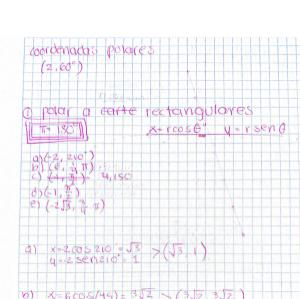 coordenadas polares
(2,60°)
① polar a carte rectangulares
π=180° x=rcosθ y=r senθ
a)(-2, 210°)
d)(-1, π/2)
e)(-2√3, 3/4 π)
a) x=-2cos 210 = √3 >(√3, 1)
y=-2 sen210° = 1
b) x=6cos(45)= 3√2 >(3√2, 3√2)